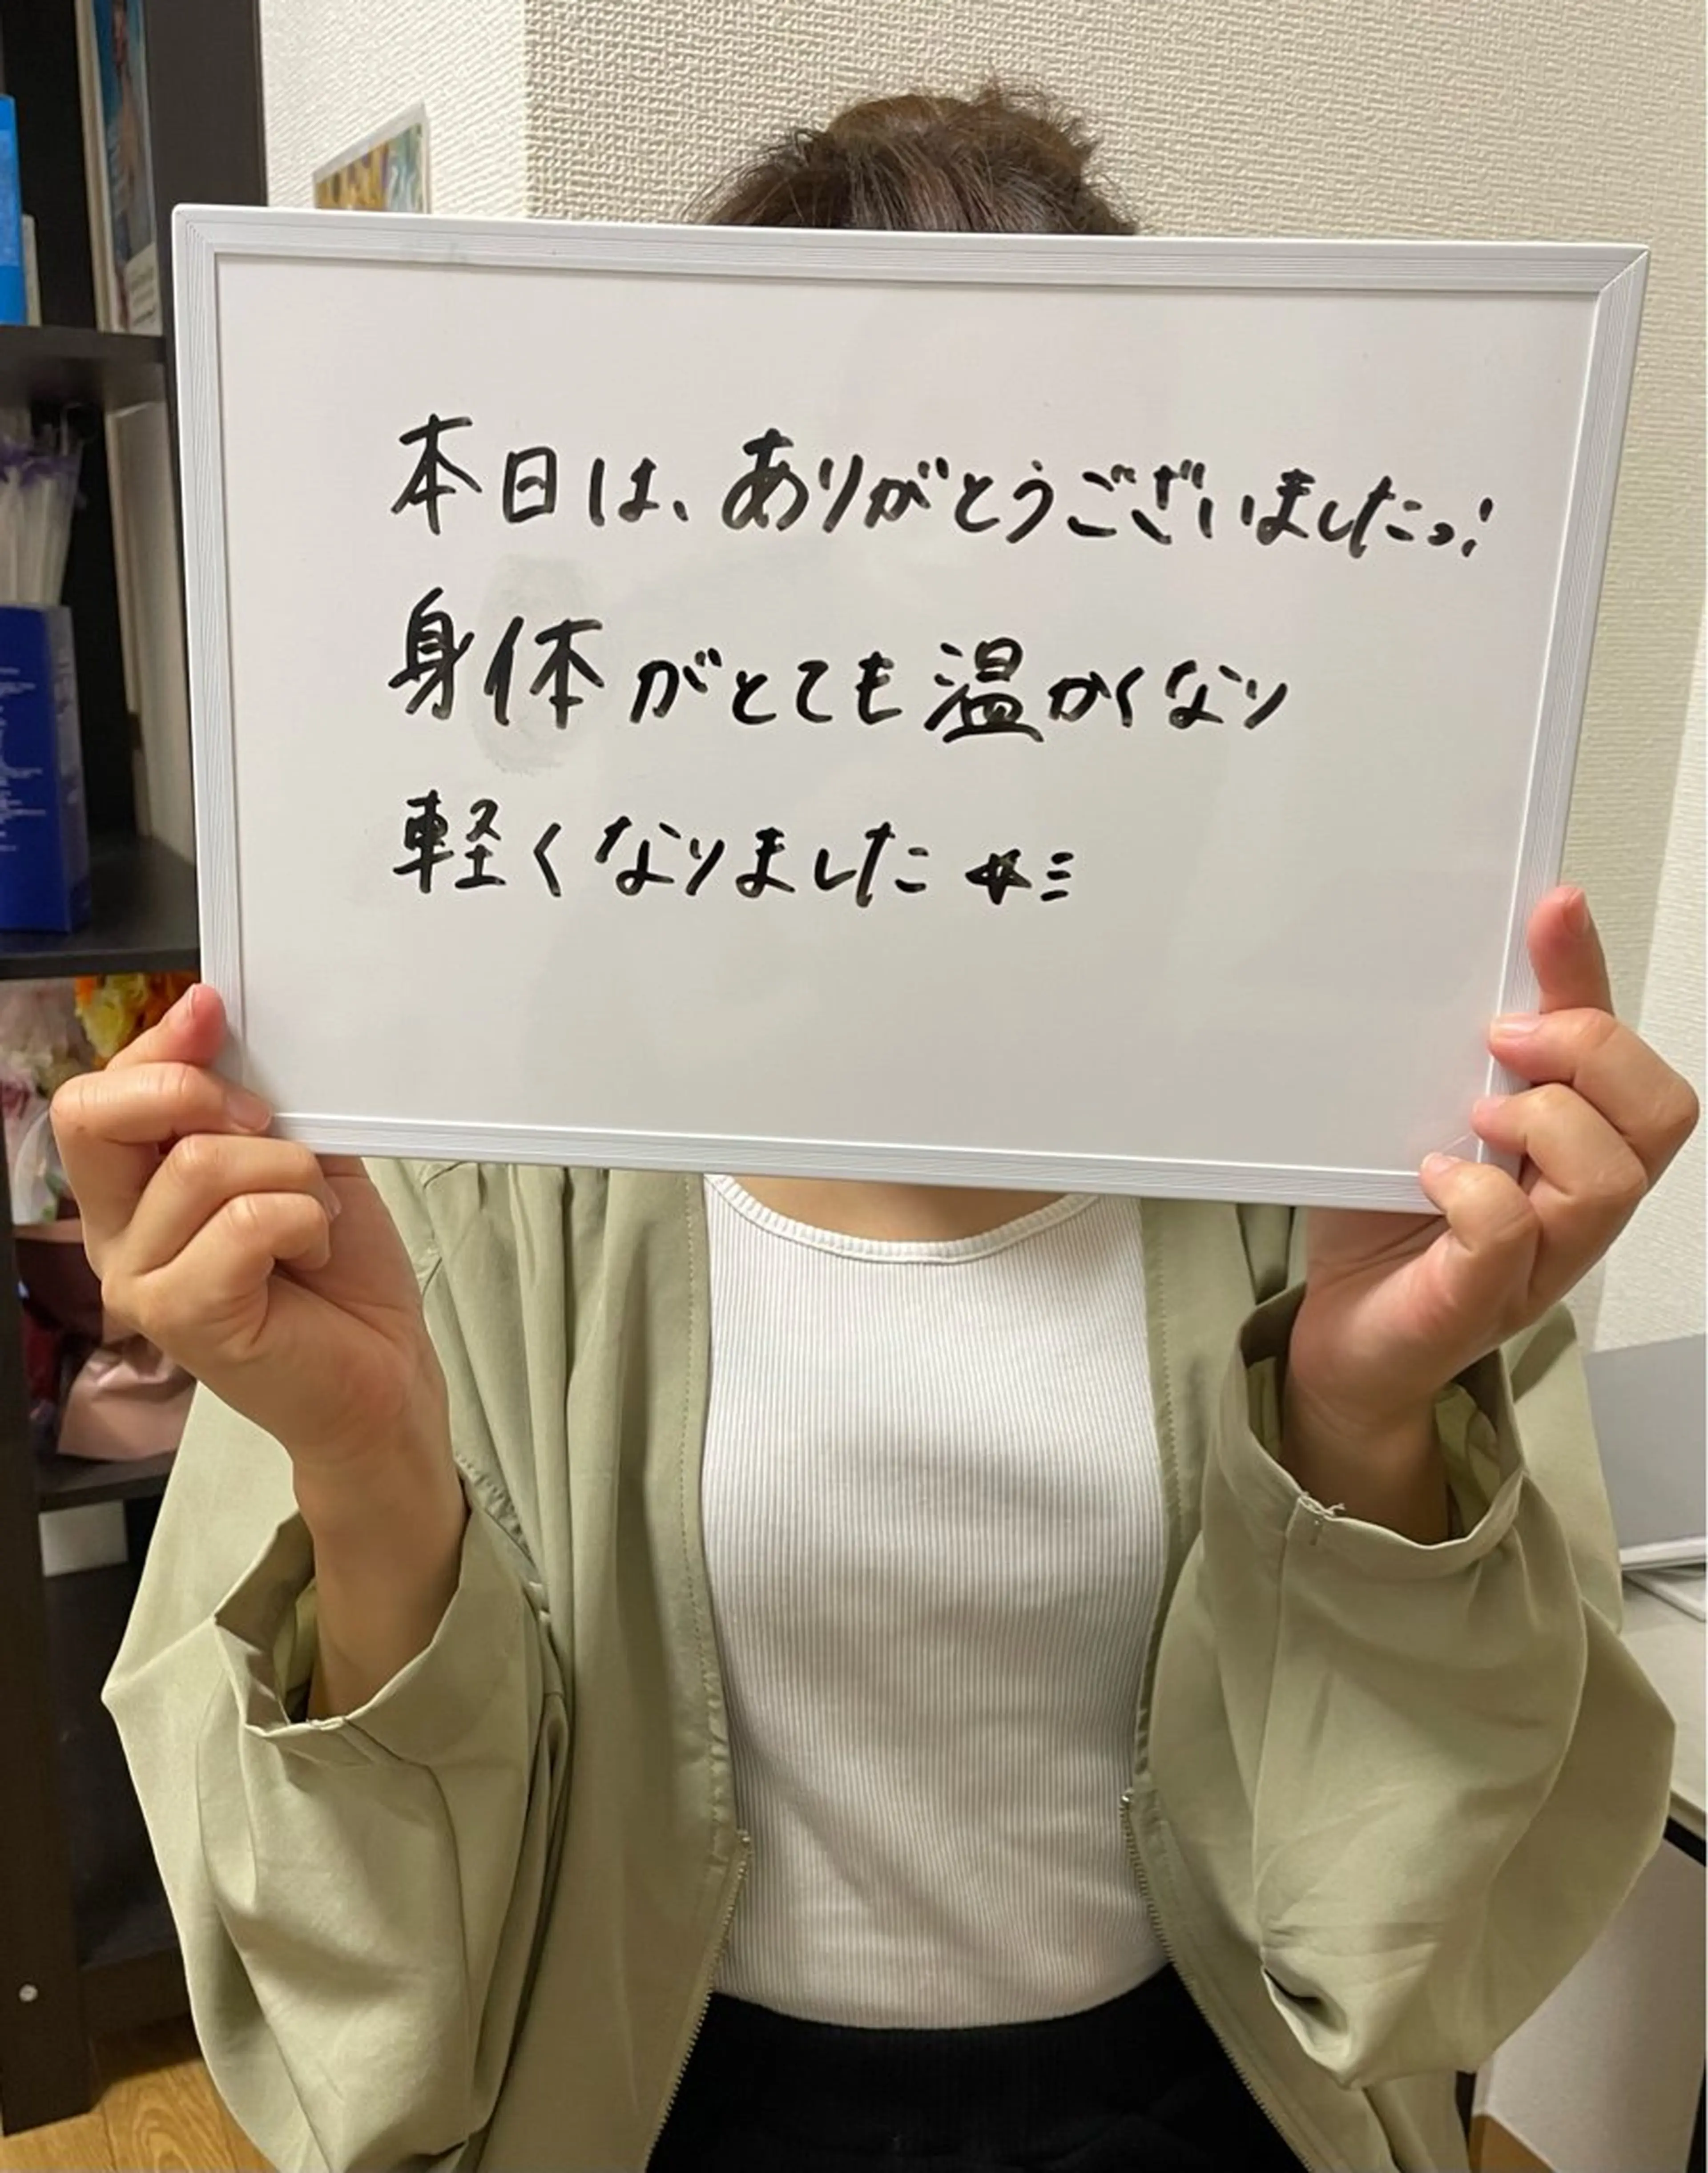 本日は、ありがとうございましたっ!
身体がとても温かくなり
軽くなりました★ミ